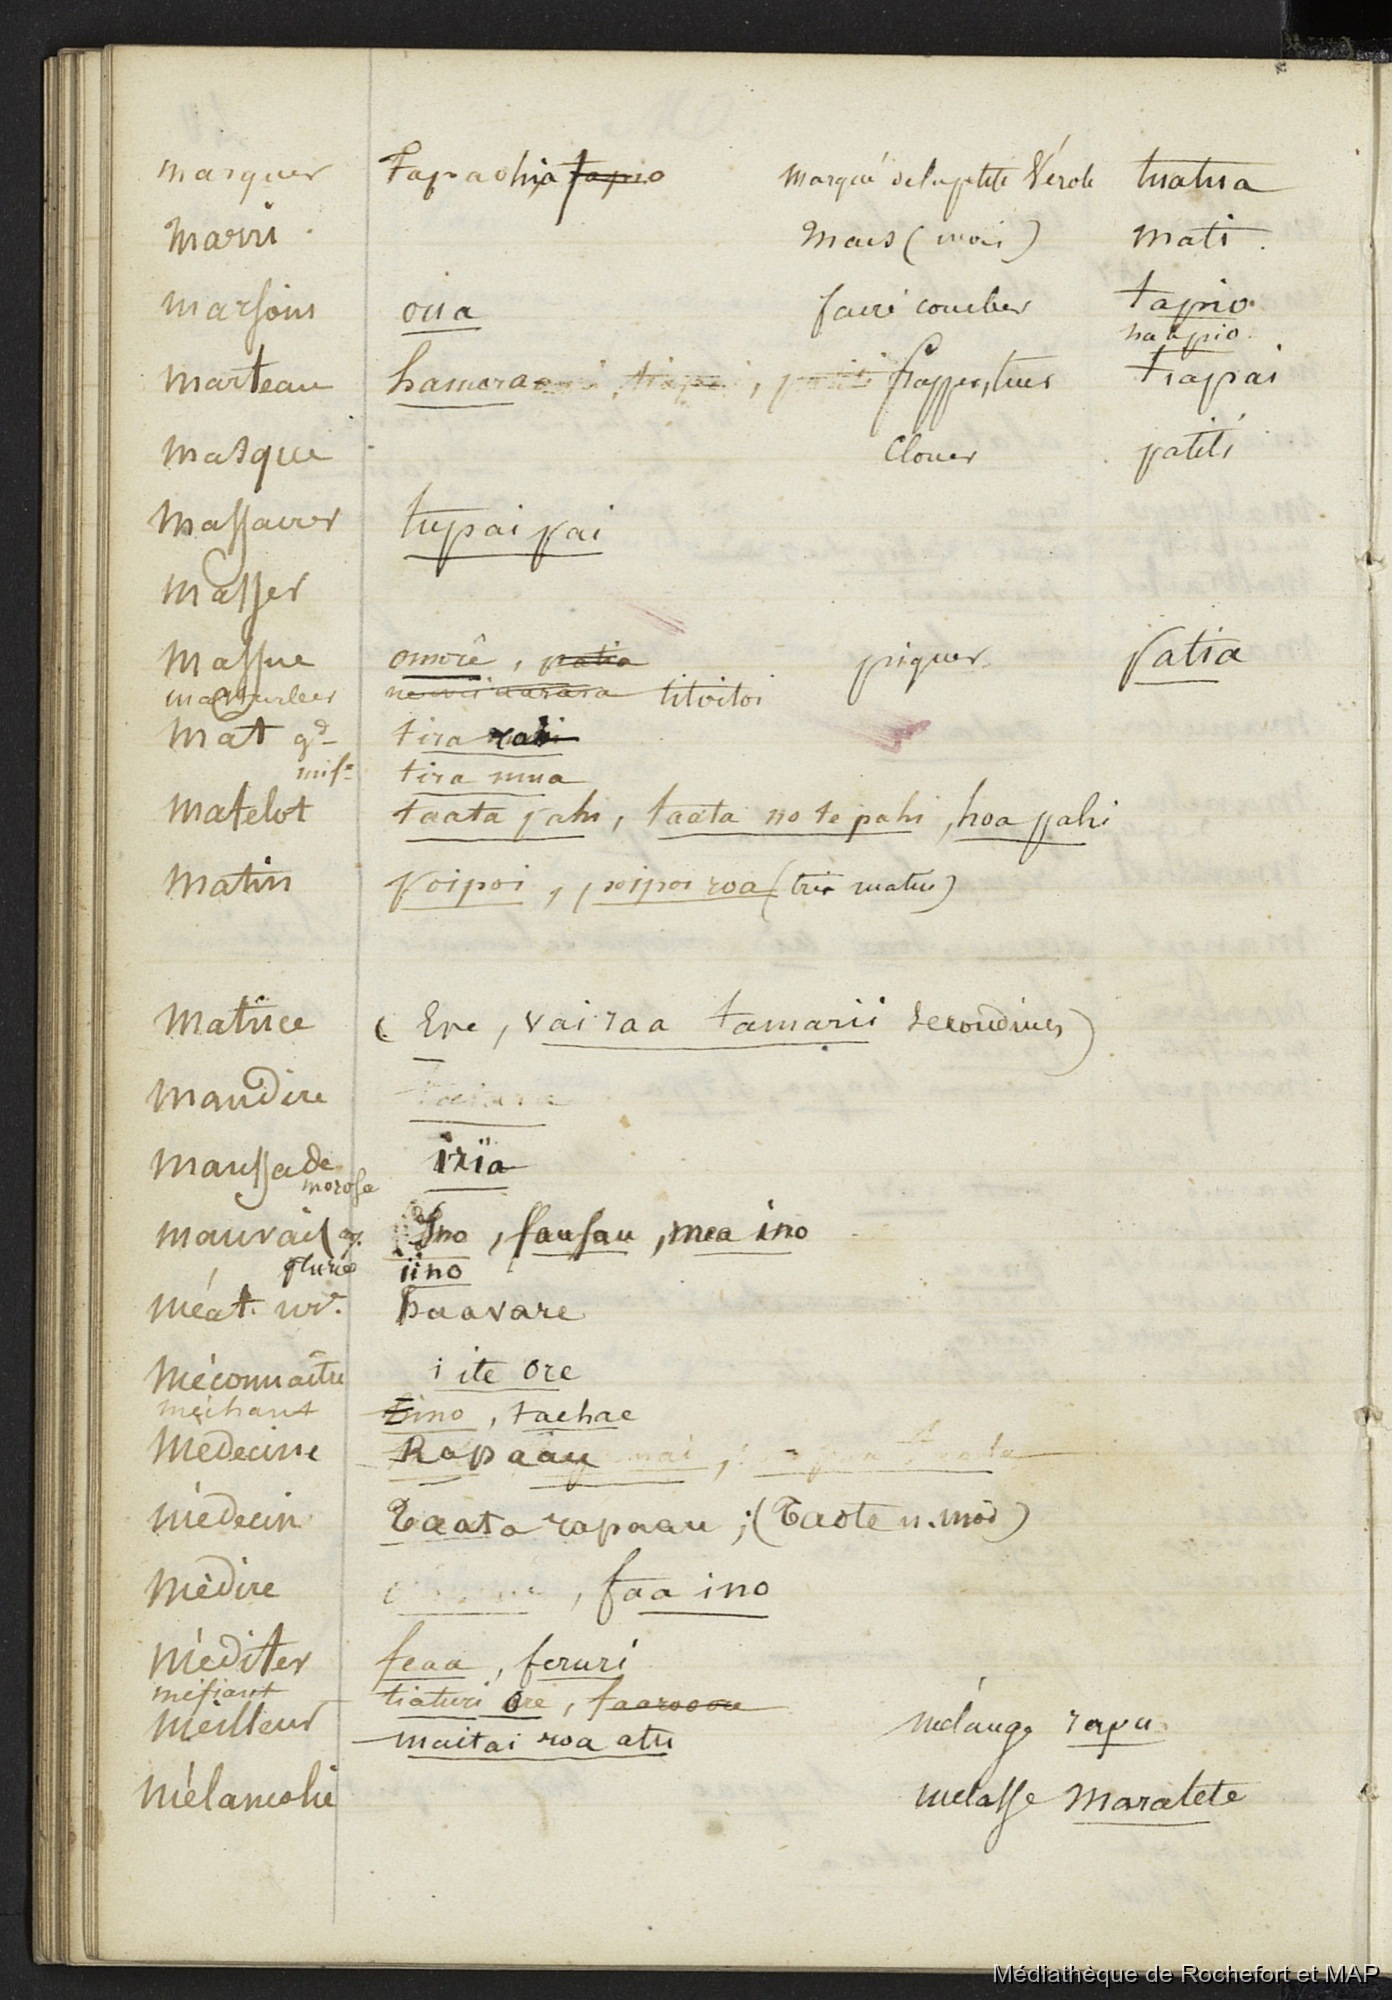 marquer Tapaohia tapio marqué de la petite Vérole tuatua
Marri Mars (mois) mati
marsouin oua faire coucher tapio
haapio
marteau hamara frapper, tuer tiapai
masque Clouer patiti
Massacrer tupai pai
Masser
Massue omore, patia piquer patia
masturber titoitoi
Mat gd tira rahi
mise tira mua
Matelot taata pahi, taata no te pahi, hoa pahi
Matin poipoi, poipoi roa (très matin)
Matrice (Ere, vairaa tamarii secondines)
Maudire
Maussade iria
morose
Mauvais Ino, faufau, mea ino
pluriel iino
Méat. ur. haavare
Méconnaître i ite ore
méchant ino, taehae
Médecine Rapaau
Médecin Taata rapaau; (Taote n. mod)
Médire , faa ino
Méditer feaa, feruri
méfiant tiaturi ore,
Meilleur maitai roa atu mélange rapu
Mélancolie mélasse maratete
Médiathèque de Rochefort et MAP